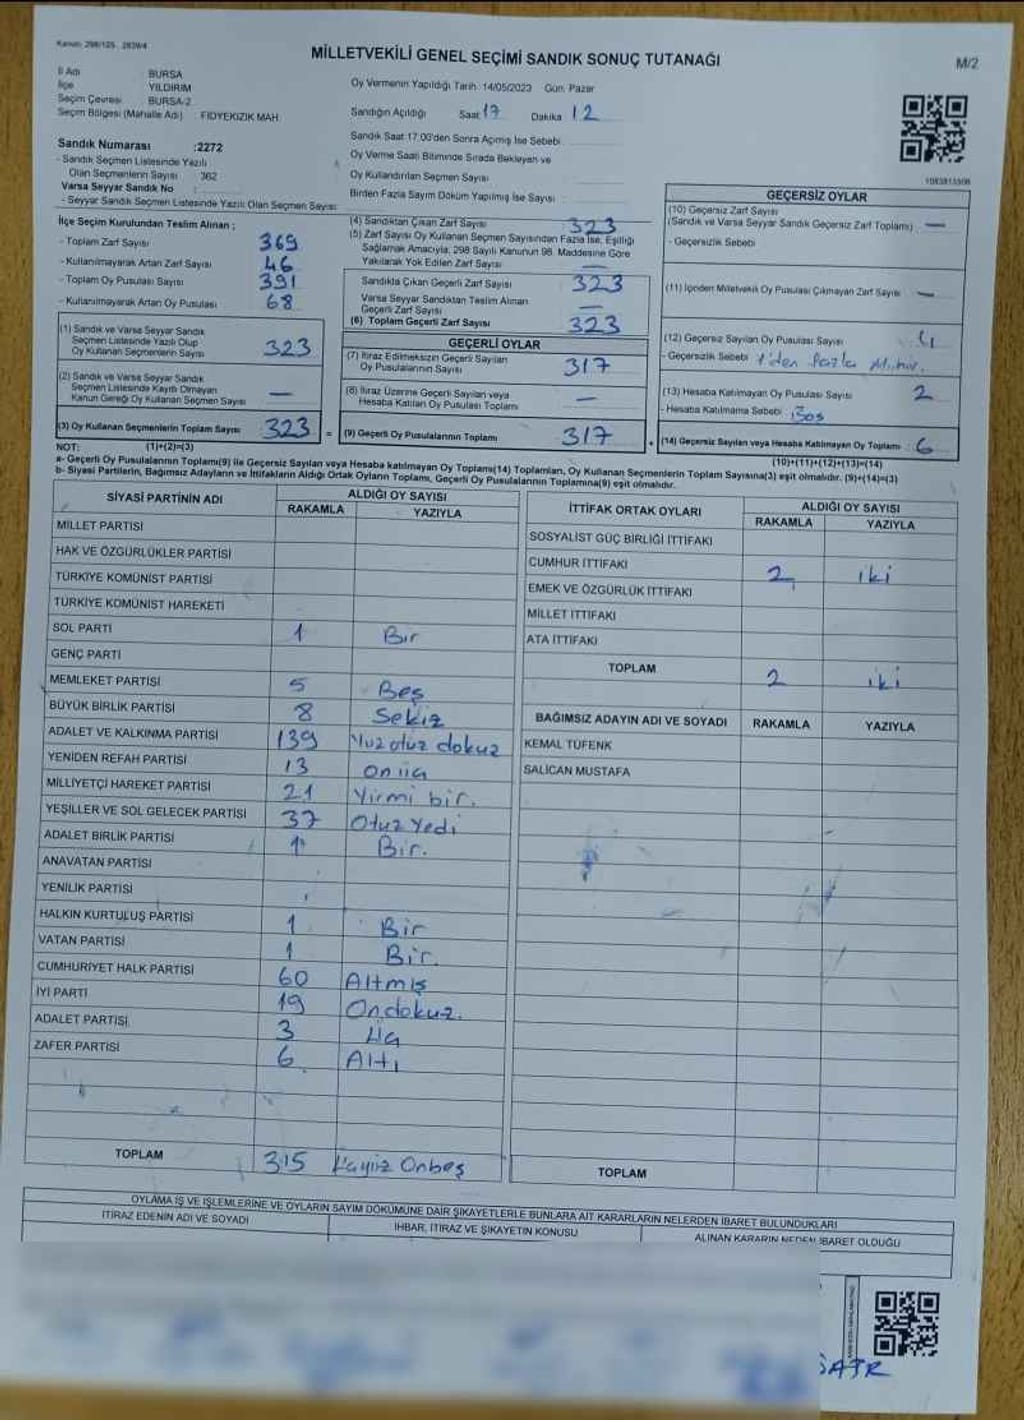 Kanun: 298/105 , 2839/4
MİLLETVEKİLİ GENEL SEÇİMİ SANDIK SONUÇ TUTANAĞI
M/2
İl Adı BURSA
İlçe YILDIRIM
Seçim Çevresi BURSA-2
Seçim Bölgesi (Mahalle Adı) FİDYEKIZIK MAH.
Oy Vermenin Yapıldığı Tarih: 14/05/2023 Gün: Pazar
Sandığın Açıldığı Saat 17 Dakika 12
Sandık Saat 17.00'den Sonra Açılmış İse Sebebi
Oy Verme Saati Bitiminde Sırada Bekleyen ve
Oy Kullandırılan Seçmen Sayısı
Birden Fazla Sayım Döküm Yapılmış İse Sayısı
Sandık Numarası :2272
- Sandık Seçmen Listesinde Yazılı
Olan Seçmenlerin Sayısı : 362
Varsa Seyyar Sandık No :
- Seyyar Sandık Seçmen Listesinde Yazılı Olan Seçmen Sayısı
İlçe Seçim Kurulundan Teslim Alınan ;
- Toplam Zarf Sayısı 369
- Kullanılmayarak Artan Zarf Sayısı 46
- Toplam Oy Pusulası Sayısı 391
- Kullanılmayarak Artan Oy Pusulası 68
(1) Sandık ve Varsa Seyyar Sandık
Seçmen Listesinde Yazılı Olup
Oy Kullanan Seçmenlerin Sayısı 323
(2) Sandık ve Varsa Seyyar Sandık
Seçmen Listesinde Kayıtlı Olmayan
Kanun Gereği Oy Kullanan Seçmen Sayısı —
(3) Oy Kullanan Seçmenlerin Toplam Sayısı 323 =
(1)+(2)=(3)
(4) Sandıktan Çıkan Zarf Sayısı 323
(5) Zarf Sayısı Oy Kullanan Seçmen Sayısından Fazla İse, Eşitliği
Sağlamak Amacıyla, 298 Sayılı Kanunun 98. Maddesine Göre
Yakılarak Yok Edilen Zarf Sayısı —
Sandıkta Çıkan Geçerli Zarf Sayısı 323
Varsa Seyyar Sandıktan Teslim Alınan
Geçerli Zarf Sayısı —
(6) Toplam Geçerli Zarf Sayısı 323
GEÇERLİ OYLAR
(7) İtiraz Edilmeksizin Geçerli Sayılan
Oy Pusulalarının Sayısı 317
(8) İtiraz Üzerine Geçerli Sayılan veya
Hesaba Katılan Oy Pusulası Toplamı —
(9) Geçerli Oy Pusulalarının Toplamı 317 +
GEÇERSİZ OYLAR
(10) Geçersiz Zarf Sayısı
(Sandık ve Varsa Seyyar Sandık Geçersiz Zarf Toplamı) —
- Geçersizlik Sebebi
(11) İçinden Milletvekili Oy Pusulası Çıkmayan Zarf Sayısı —
(12) Geçersiz Sayılan Oy Pusulası Sayısı 4
- Geçersizlik Sebebi 1'den fazla Mühür.
(13) Hesaba Katılmayan Oy Pusulası Sayısı 2
- Hesaba Katılmama Sebebi Boş
(14) Geçersiz Sayılan veya Hesaba Katılmayan Oy Toplamı : 6
(10)+(11)+(12)+(13)=(14)
NOT:
a- Geçerli Oy Pusulalarının Toplamı(9) ile Geçersiz Sayılan veya Hesaba katılmayan Oy Toplamı(14) Toplamları, Oy Kullanan Seçmenlerin Toplam Sayısına(3) eşit olmalıdır. (9)+(14)=(3)
b- Siyasi Partilerin, Bağımsız Adayların ve İttifakların Aldığı Ortak Oyların Toplamı, Geçerli Oy Pusulalarının Toplamına(9) eşit olmalıdır.
SİYASİ PARTİNİN ADI ALDIĞI OY SAYISI
RAKAMLA YAZIYLA
MİLLET PARTİSİ
HAK VE ÖZGÜRLÜKLER PARTİSİ
TÜRKİYE KOMÜNİST PARTİSİ
TÜRKİYE KOMÜNİST HAREKETİ
SOL PARTİ 1 Bir
GENÇ PARTİ
MEMLEKET PARTİSİ 5 Beş
BÜYÜK BİRLİK PARTİSİ 8 Sekiz
ADALET VE KALKINMA PARTİSİ 139 Yuz otuz dokuz
YENİDEN REFAH PARTİSİ 13 On üç
MİLLİYETÇİ HAREKET PARTİSİ 21 Yirmi bir.
YEŞİLLER VE SOL GELECEK PARTİSİ 37 Otuz Yedi
ADALET BİRLİK PARTİSİ 1 Bir.
ANAVATAN PARTİSİ
YENİLİK PARTİSİ
HALKIN KURTULUŞ PARTİSİ 1 Bir
VATAN PARTİSİ 1 Bir.
CUMHURİYET HALK PARTİSİ 60 Altmış
İYİ PARTİ 19 Ondokuz.
ADALET PARTİSİ 3 Üç
ZAFER PARTİSİ 6 Altı
TOPLAM 315 Onbeş
İTTİFAK ORTAK OYLARI ALDIĞI OY SAYISI
RAKAMLA YAZIYLA
SOSYALİST GÜÇ BİRLİĞİ İTTİFAKI
CUMHUR İTTİFAKI 2 iki
EMEK VE ÖZGÜRLÜK İTTİFAKI
MİLLET İTTİFAKI
ATA İTTİFAKI
TOPLAM 2 iki
BAĞIMSIZ ADAYIN ADI VE SOYADI RAKAMLA YAZIYLA
KEMAL TÜFENK
SALİCAN MUSTAFA
TOPLAM
OYLAMA İŞ VE İŞLEMLERİNE VE OYLARIN SAYIM DÖKÜMÜNE DAİR ŞİKAYETLERLE BUNLARA AİT KARARLARIN NELERDEN İBARET BULUNDUKLARI
İTİRAZ EDENİN ADI VE SOYADI
İHBAR, İTİRAZ VE ŞİKAYETİN KONUSU
ALINAN KARARIN NEDEN İBARET OLDUĞU